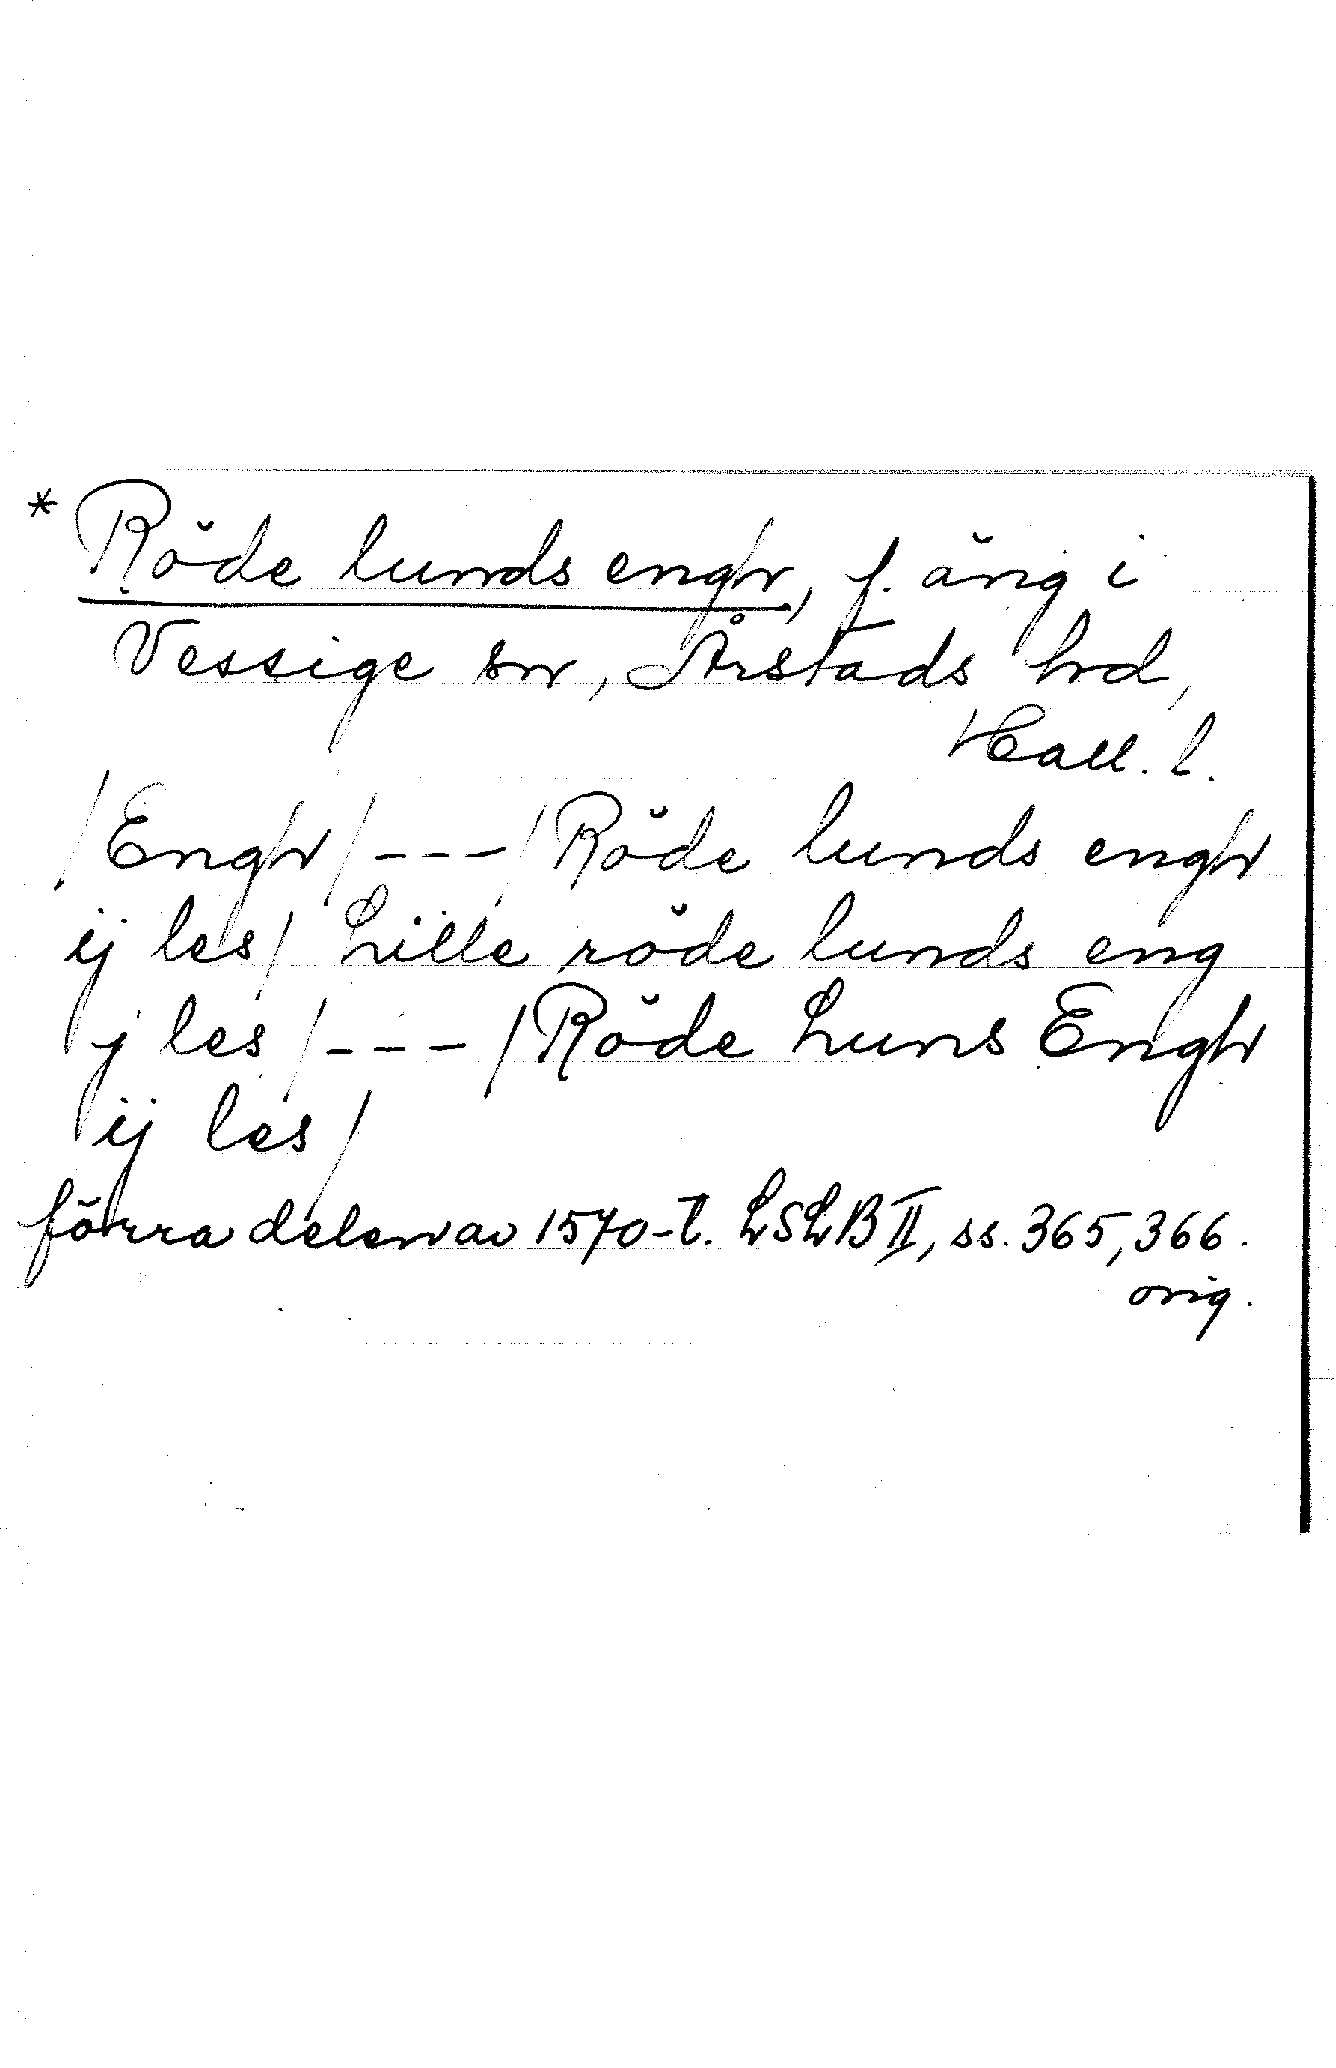 * Röde lunds engh, f. äng i
Vessige sn, Årstads hd,
Hall. l.
/Engh/---/Röde lunds engh
ij les/ Lille röde lunds eng
j les/---/Röde Luns Engh
ij les/
förra delen av 1570-t. LSLB II, ss. 365, 366.
orig.